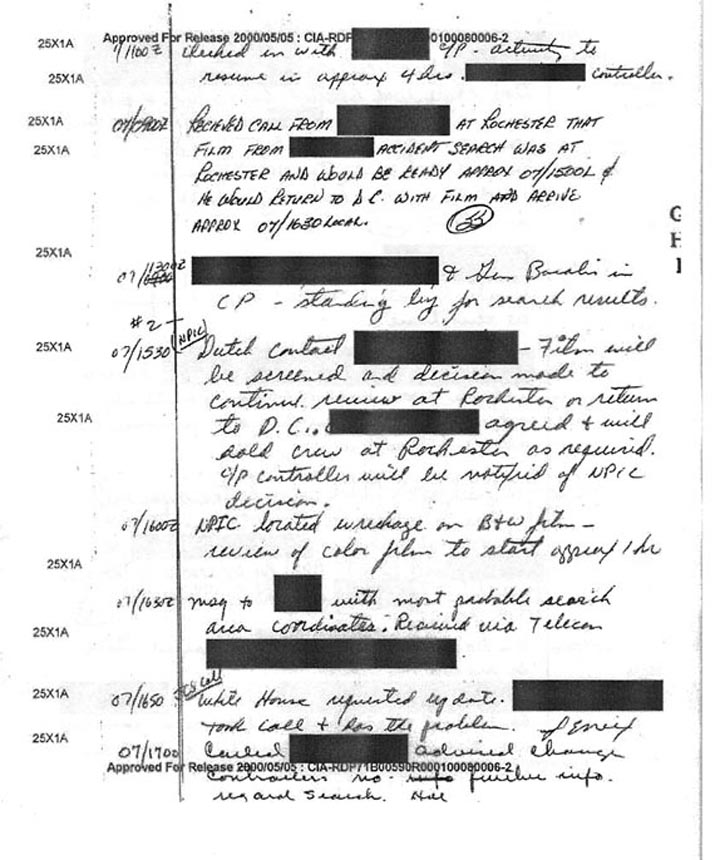 Approved For Release 2000/05/05 : CIA-RDP 00100080006-2
25X1A 7/1100Z checked in with C/P - activity to
25X1A resume in approx 4 hrs. controller.
25X1A 07/0900Z RECIEVED CALL FROM AT ROCHESTER THAT
25X1A FILM FROM ACCIDENT SEARCH WAS AT
ROCHESTER AND WOULD BE READY APPROX 07/1500L &
HE WOULD RETURN TO D.C. WITH FILM AND ARRIVE
APPROX 07/1630 LOCAL.
G
H
I
25X1A
07/1300Z & Gen in
CP - standing by for search results.
#2 - (NPIC)
25X1A 07/1530 Dutch contact - Film will
be screened and decision made to
continue review at Rochester or return
25X1A to D.C., agreed & will
hold crew at Rochester as required.
C/P controller will be notified of NPIC
decision.
07/1600Z NPIC located wreckage on B&W film -
review of color film to start approx 1 hr
25X1A
07/1630Z msg to with most probable search
area coordinates. Required via Telecon
25X1A
JCS call
25X1A 07/1650 White House requested update.
took call & has the problem.
25X1A 07/1700 Called advised change
Approved For Release 2000/05/05 : CIA-RDP71B00590R000100080006-2
controllers no info further info.
regard search.